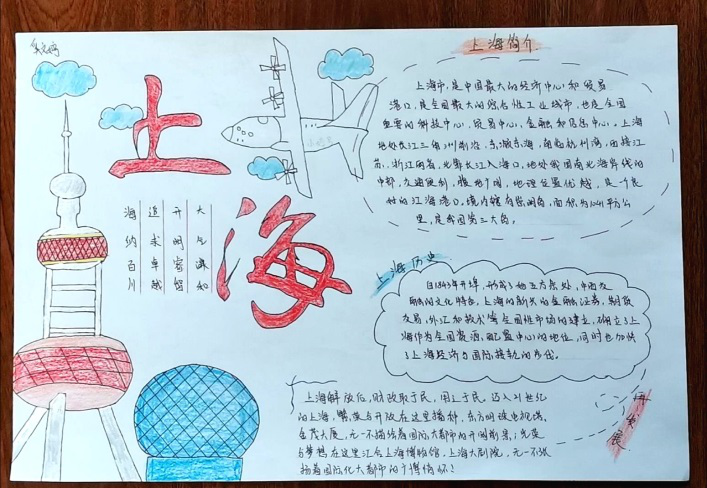 上海
海纳百川
追求卓越
开明睿智
大气谦和
上海简介
上海市,是中国最大的经济中心和贸易
港口,是全国最大的综合性工业城市,也是全国
重要的科技中心,贸易中心,金融和信息中心。上海
地处长江三角洲前沿,东濒东海,南临杭州湾,西接江
苏,浙江两省,北界长江入海口,地处我国南北海岸线的
中部,交通便利,腹地广阔,地理位置优越,是一个良
好的江海港口,境内辖有崇明岛,面积为1041平方公
里,是我国第三大岛。
上海历史
自1843年开埠,形成了她五方杂处,中西交
融的文化特色。上海的新兴的金融证券,期货
交易,外汇和技术等全国性市场的建立,确立了上
海作为全国资源配置中心的地位,同时也加快
了上海经济与国际接轨的步伐。
上海解放后,财政取于民,用于民。迈入21世纪
的上海,繁荣与开放在这里播种,东方明珠电视塔,
金茂大厦,无一不描绘着国际大都市的开阔新景;光荣
与梦想在这里汇合上海博物馆,上海大剧院,无一不张
扬着国际化大都市的广博情怀!